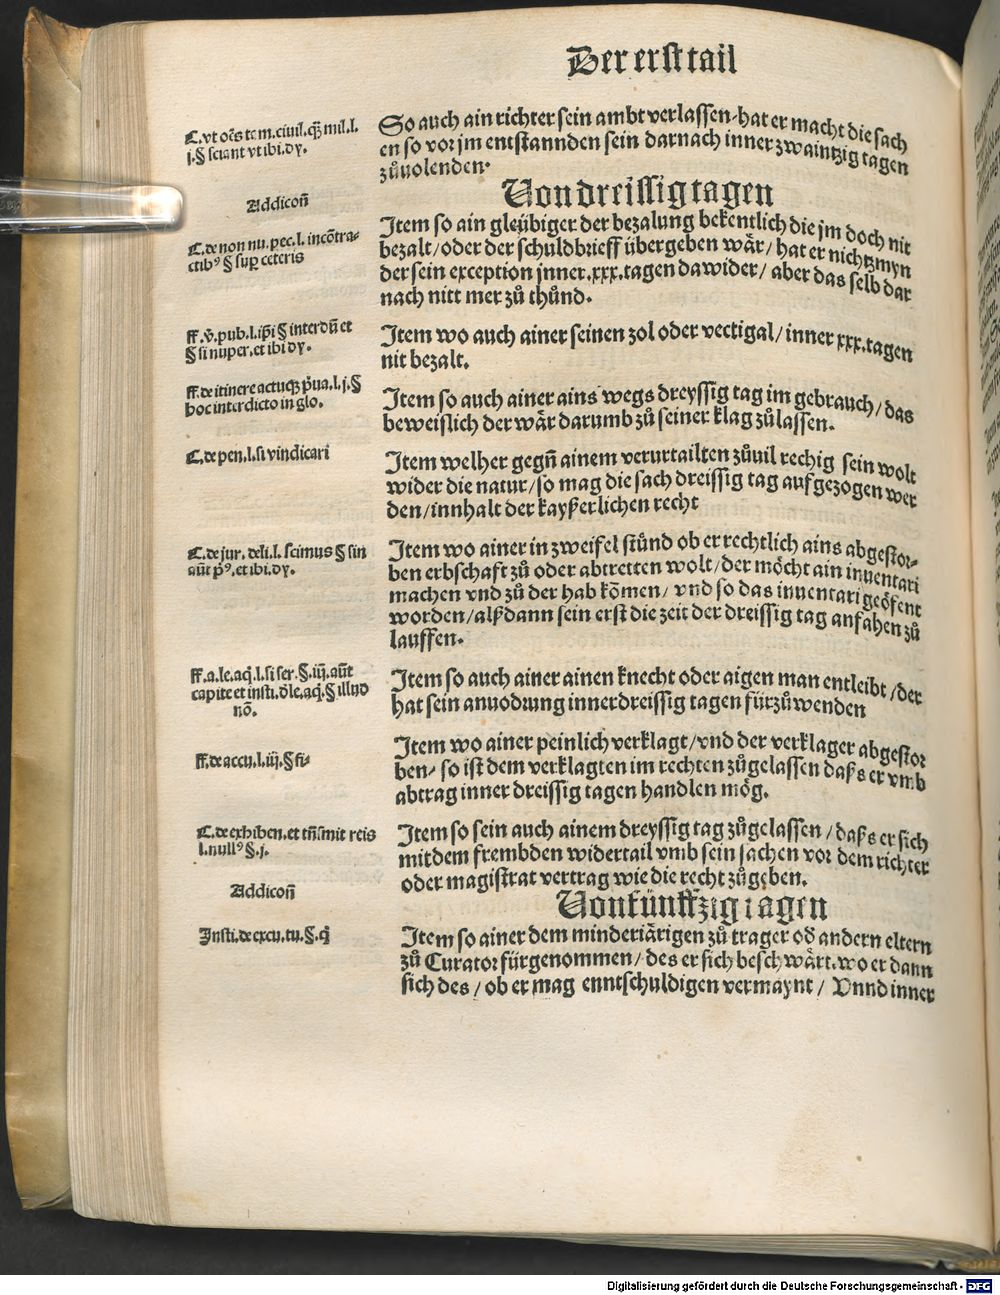 Der erst tail
C. vt oēs tā m. ciuil. q̄ȝ mil. l.
j. § sciant vt ibi. dy.
So auch ain richter sein ambt verlassen / hat er macht die sach
en so vor jm entstannden sein darnach inner zwaintzig tagen
zůuolenden.
Addicoñ
Von dreissig tagen
C. de non nu. pec. l. in cōtra-
ctibꝰ § sup ceteris
Item so ain gleübiger der bezalung bekentlich die jm doch nit
bezalt / oder der schuldbrieff übergeben wär / hat er nichtzmyn
der sein exception jnner .xxx. tagen dawider / aber das selb dar
nach nitt mer zů thůnd.
ff. v̄. pub. l. ip̄i § interdū et
§ si nuper. et ibi dy.
Item wo auch ainer seinen zol oder vectigal / inner xxx. tagen
nit bezalt.
ff. de itinere actuqȝ p̄ua. l. j. §
hoc interdicto in glo.
Item so auch ainer ains wegs dreyssig tag im gebrauch / das
beweislich der wär darumb zů seiner klag zůlassen.
C. de pen. l. si vindicari
Item welher gegñ ainem verurtailten zůuil rechig sein wolt
wider die natur / so mag die sach dreissig tag aufgezogen wer
den / innhalt der kayßerlichen recht
C. de jur. deli. l. scimus § sin
aūt p̄ꝰ. et ibi. dy.
Item wo ainer in zweifel stůnd ob er rechtlich ains abgestor-
ben erbschaft zů oder abtretten wolt / der möcht ain inuentari
machen vnd zů der hab kōmen / vnd so das inuentari geöfent
worden / alßdann sein erst die zeit der dreissig tag anfahen zů
lauffen.
ff. a. le. aq̄. l. si ser. §. iij. aūt
capite et insti. d̄ le. aq̄. § illud
nō.
Item so auch ainer ainen knecht oder aigen man entleibt / der
hat sein anuodrung innerdreissig tagen fürzůwenden
ff. de accu. l. iij. § fi.
Item wo ainer peinlich verklagt / vnd der verklager abgestor
ben / so ist dem verklagten im rechten zůgelassen daß er vmb
abtrag inner dreissig tagen handlen mög.
C. de exhiben. et trāsmit reis
l. nullꝰ §. j.
Item so sein auch ainem dreyssig tag zůgelassen / daß er sich
mitdem frembden widertail vmb sein sachen vor dem richter
oder magistrat vertrag wie die recht zůgeben.
Addicoñ
Von fünffzig tagen
Insti. de excu. tu. §. q̄
Item so ainer dem minderiärigen zů trager od̄ andern eltern
zů Curator fürgenommen / des er sich beschwärt. wo er dann
sich des / ob er mag enntschuldigen vermaynt / Vnnd inner
Digitalisierung gefördert durch die Deutsche Forschungsgemeinschaft - DFG